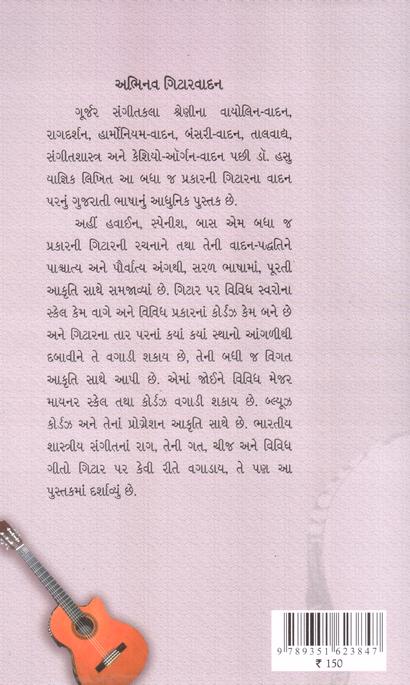 અભિનવ ગિટારવાદન
ગૂર્જર સંગીતકલા શ્રેણીના વાયોલિન-વાદન,
રાગદર્શન, હાર્મોનિયમ-વાદન, બંસરી-વાદન, તાલવાદ્ય,
સંગીતશાસ્ત્ર અને કેશિયો-ઑર્ગન-વાદન પછી ડૉ. હસુ
યાજ્ઞિક લિખિત આ બધા જ પ્રકારની ગિટારના વાદન
પરનું ગુજરાતી ભાષાનું આધુનિક પુસ્તક છે.
અહીં હવાઈન, સ્પેનીશ, બાસ એમ બધા જ
પ્રકારની ગિટારની રચનાને તથા તેની વાદન-પદ્ધતિને
પાશ્ચાત્ય અને પૌર્વાત્ય અંગથી, સરળ ભાષામાં, પૂરતી
આકૃતિ સાથે સમજાવ્યાં છે. ગિટાર પર વિવિધ સ્વરોના
સ્કેલ કેમ વાગે અને વિવિધ પ્રકારનાં કોર્ડઝ કેમ બને છે
અને ગિટારના તાર પરનાં કયાં કયાં સ્થાનો આંગળીથી
દબાવીને તે વગાડી શકાય છે, તેની બધી જ વિગત
આકૃતિ સાથે આપી છે. એમાં જોઈને વિવિધ મેજર
માયનર સ્કેલ તથા કોર્ડઝ વગાડી શકાય છે. બ્લ્યૂઝ
કોર્ડઝ અને તેનાં પ્રોગ્રેશન આકૃતિ સાથે છે. ભારતીય
શાસ્ત્રીય સંગીતનાં રાગ, તેની ગત, ચીજ અને વિવિધ
ગીતો ગિટાર પર કેવી રીતે વગાડાય, તે પણ આ
પુસ્તકમાં દર્શાવ્યું છે.
9789351623847
₹ 150